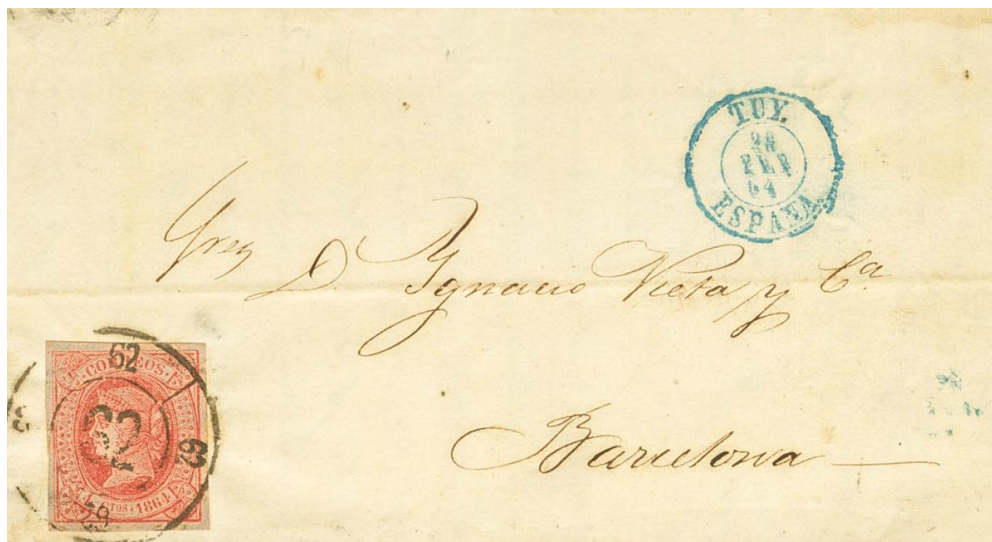 TUY.
28
FEB
64
ESPAÑA
Sres
D Ygnacio Vieta y Cª
Barcelona
CORREOS
62
62
62
4 CTOS 1864